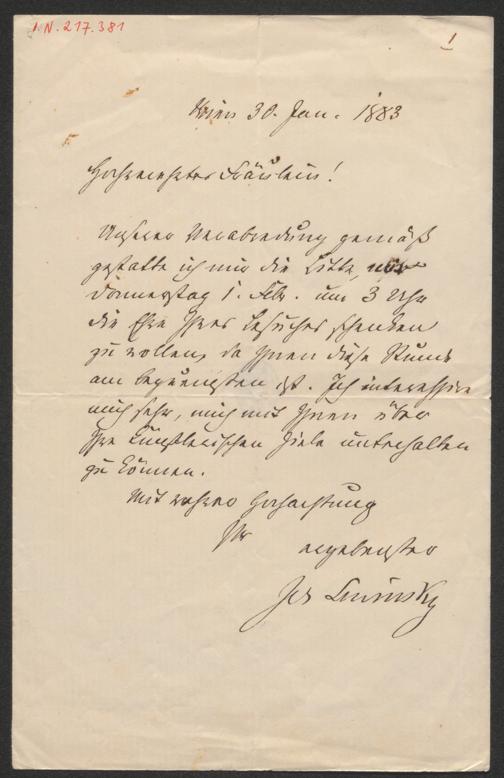 I.N. 217.381
1
Wien 30. Jan. 1883
Hochverehrtes Fräulein!
Unserer Verabredung gemäß
gestatte ich mir die Bitte, mir
Donnerstag 1. Febr. um 3 Uhr
die Ehre Ihres Besuches schenken
zu wollen, da Ihnen diese Stunde
am bequemsten ist. Ich interessire
mich sehr, mich mit Ihnen über
Ihre künstlerischen Ziele unterhalten
zu können.
Mit wahrer Hochachtung
Ihr ergebenster
Jos Lewinsky